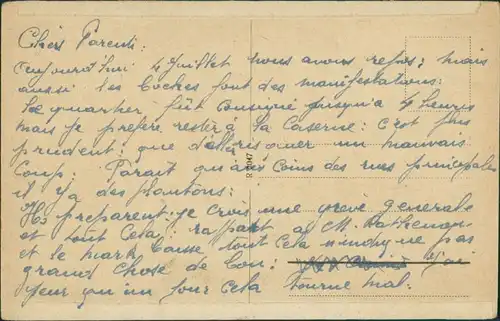 Chers Parents:
aujourd'hui 4 Juillet nous avons repos; mais
aussi les boches font des manifestations:
le quartier fût consigné jusqu'à 4 heures
mais je préfère rester à la Caserne: c'est plus
prudent: que de risquer un mauvais
Coup: Parait qu'aux coins des rues principales
il y a des plantons:
Ils preparent: je crois une grève generale
et tout cela: rapport a M. Rathenau
et le mark baisse tout cela n'indique pas
grand chose de bon: j'ai
peur qu'un jour cela tourne mal.